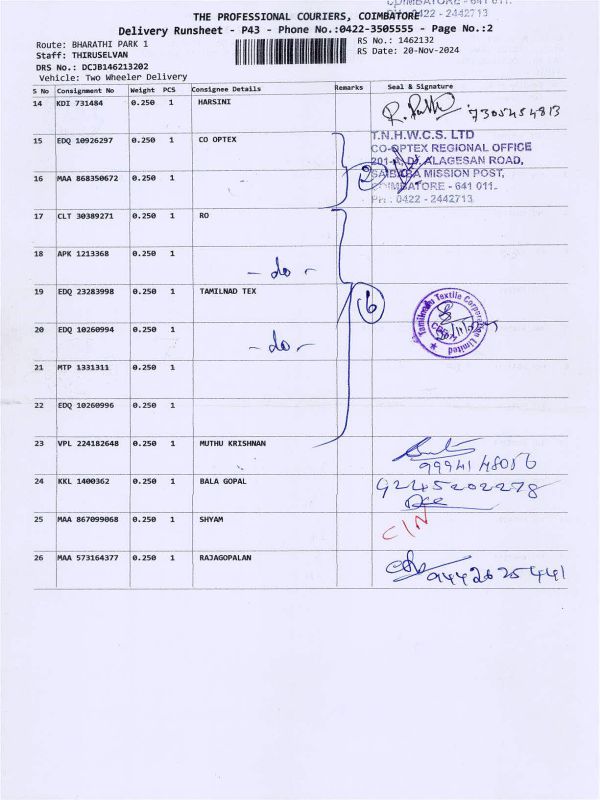 COIMBATORE - 641 011.
0422 - 2442713
THE PROFESSIONAL COURIERS, COIMBATORE
Delivery Runsheet - P43 - Phone No.:0422-3505555 - Page No.:2
Route: BHARATHI PARK 1
RS No.: 1462132
Staff: THIRUSELVAN
RS Date: 20-Nov-2024
DRS No.: DCJB146213202
Vehicle: Two Wheeler Delivery
S No Consignment No Weight PCS Consignee Details Remarks Seal & Signature
14 KDI 731484 0.250 1 HARSINI 7305454813
15 EDQ 10926297 0.250 1 CO OPTEX
T.N.H.W.C.S. LTD
CO-OPTEX REGIONAL OFFICE
ALAGESAN ROAD,
SAIBABA MISSION POST,
COIMBATORE - 641 011.
PH : 0422 - 2442713
16 MAA 868350672 0.250 1
2
17 CLT 30389271 0.250 1 RO
18 APK 1213368 0.250 1
- do -
19 EDQ 23283998 0.250 1 TAMILNAD TEX
6
Tamilnadu Textile Corporation Limited
20 EDQ 10260994 0.250 1
- do -
21 MTP 1331311 0.250 1
22 EDQ 10260996 0.250 1
23 VPL 224182648 0.250 1 MUTHU KRISHNAN
9994148056
24 KKL 1400362 0.250 1 BALA GOPAL 9245202278
25 MAA 867099068 0.250 1 SHYAM C/N
26 MAA 573164377 0.250 1 RAJAGOPALAN 9442625441